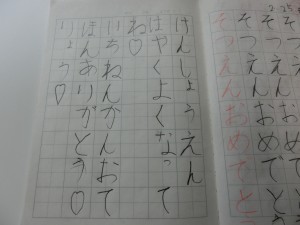 そつえんおめでと
そつえんおめでと
そつえんおめでと
けんしょうえん
はやくよくなって
ね♡
いちねんかんおて
ほんありがとう♡
りょう♡